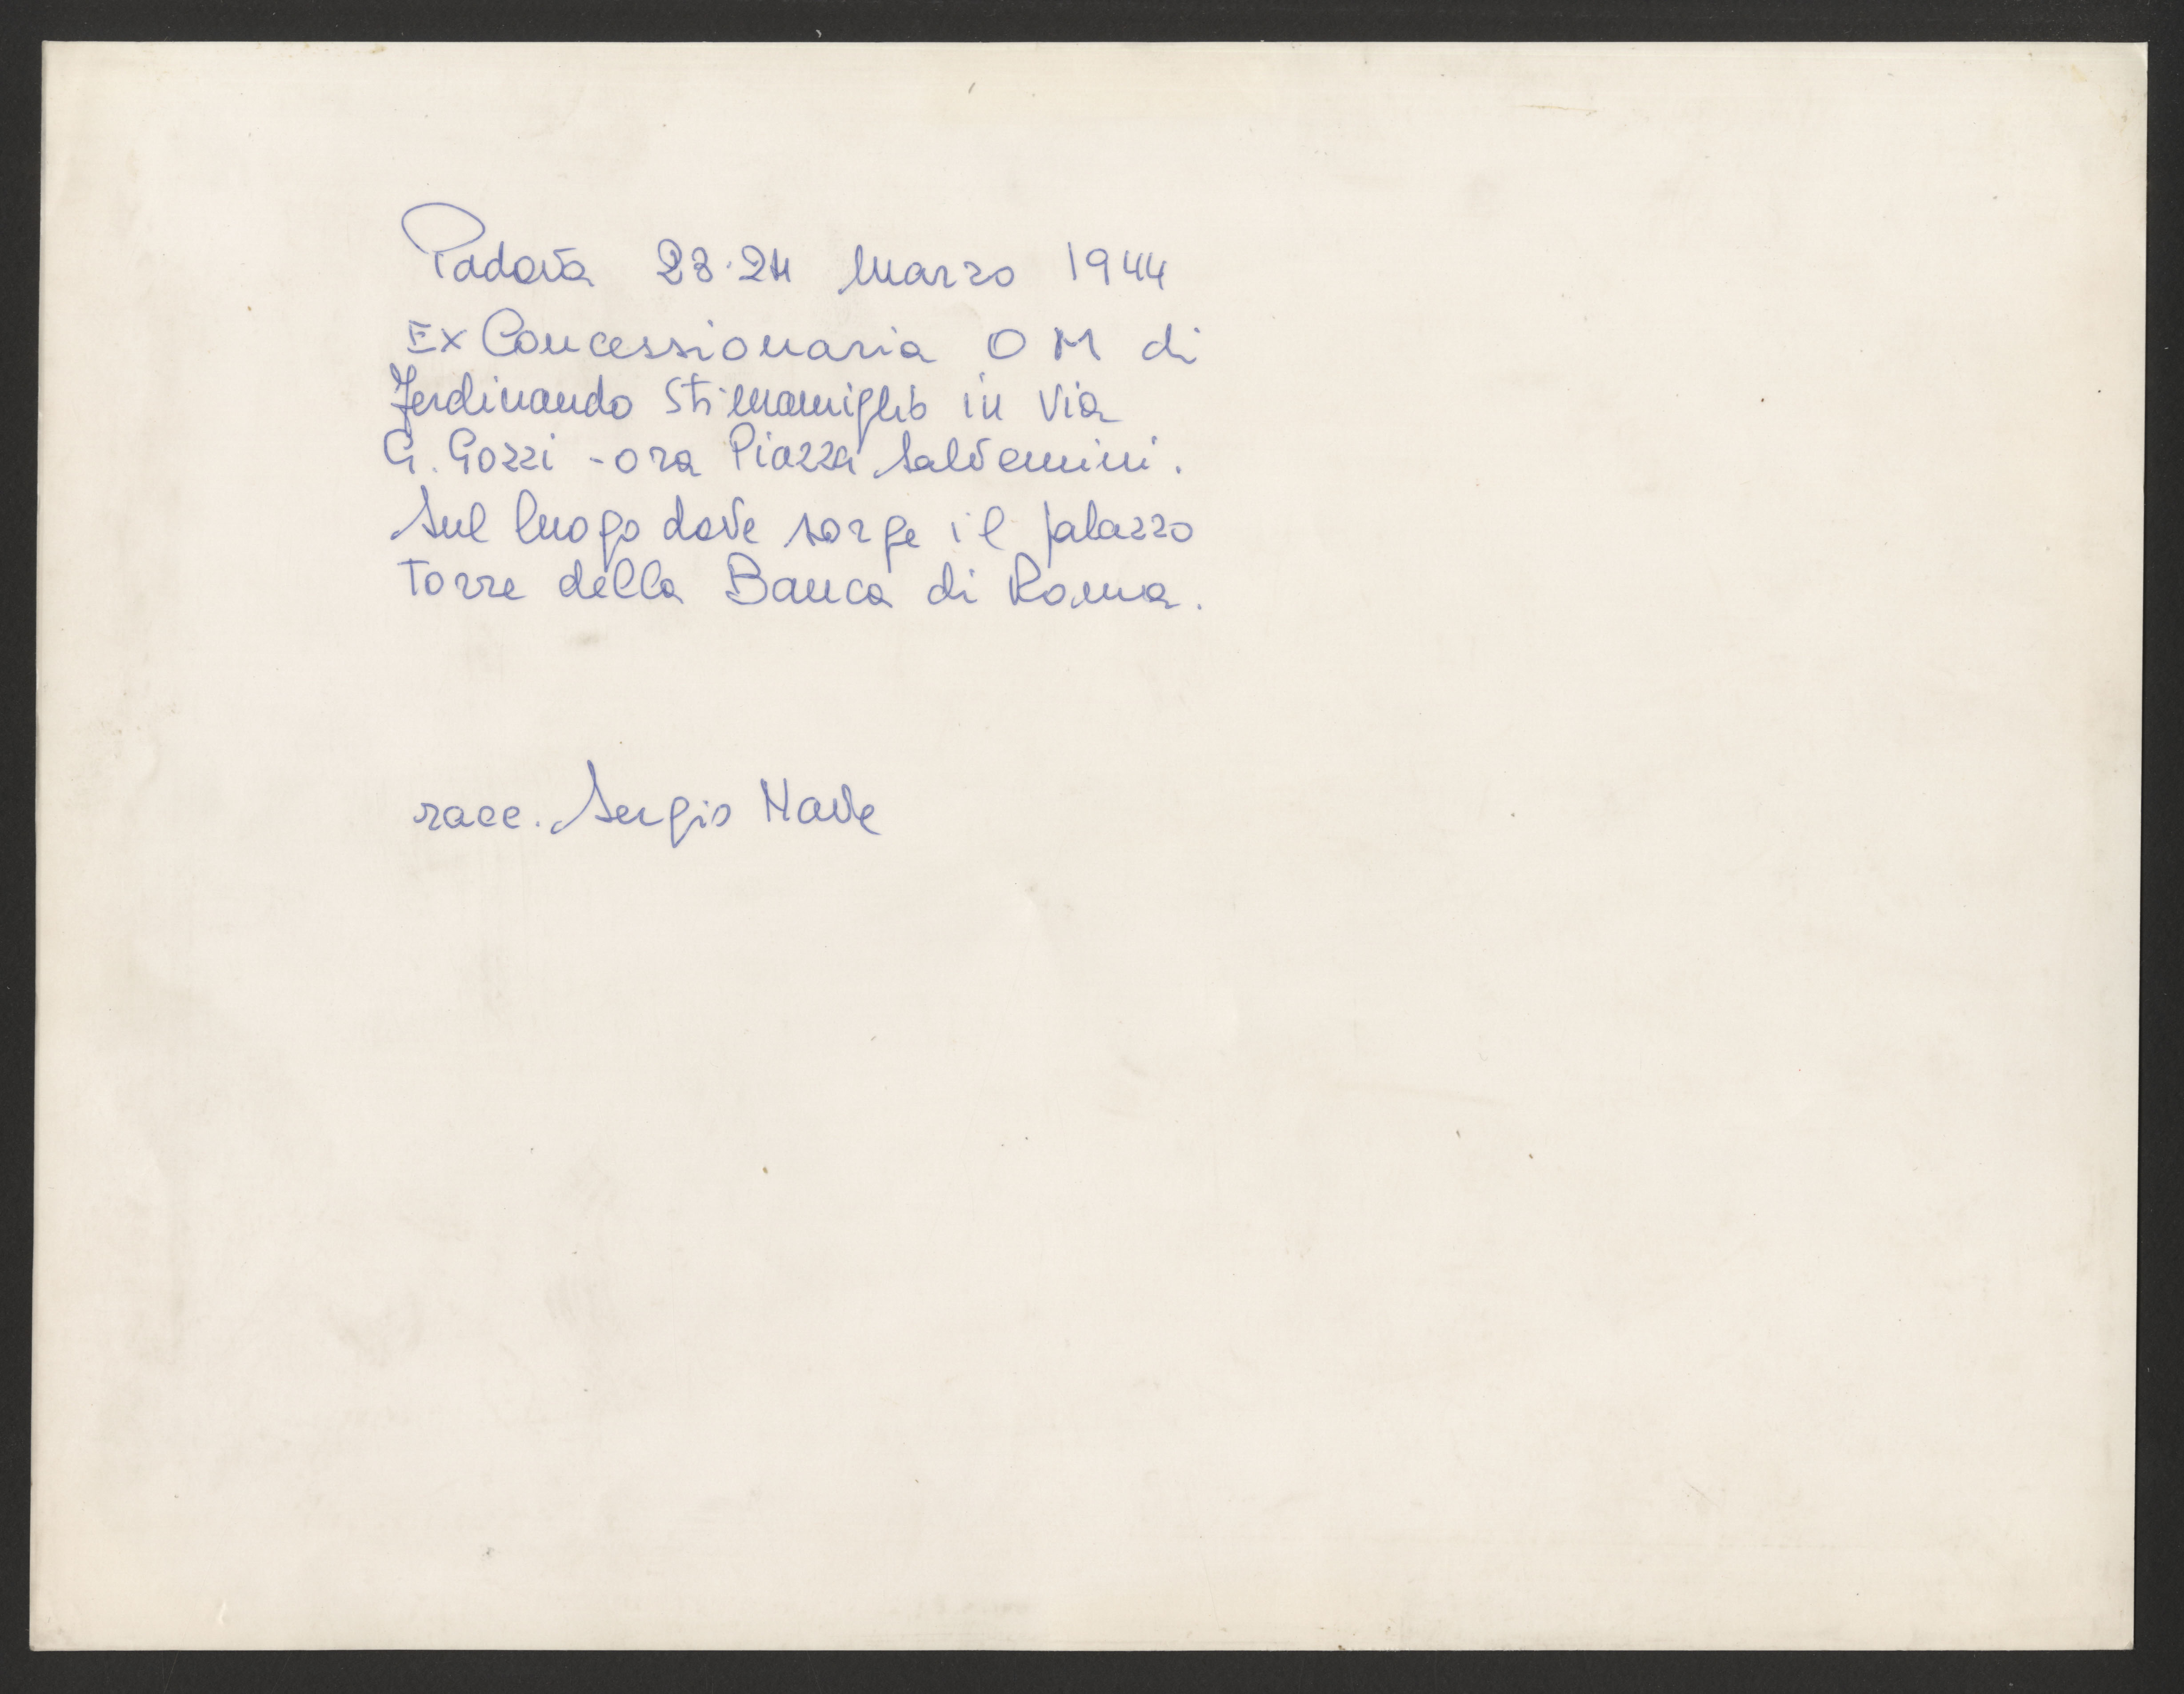 Padova 23-24 Marzo 1944
Ex Concessionaria O M di
Ferdinando Stimamiglio in Via
G. Gozzi - ora Piazza Salvemini.
Sul luogo dove sorge il palazzo
Torre della Banca di Roma.
racc. Sergio Nave